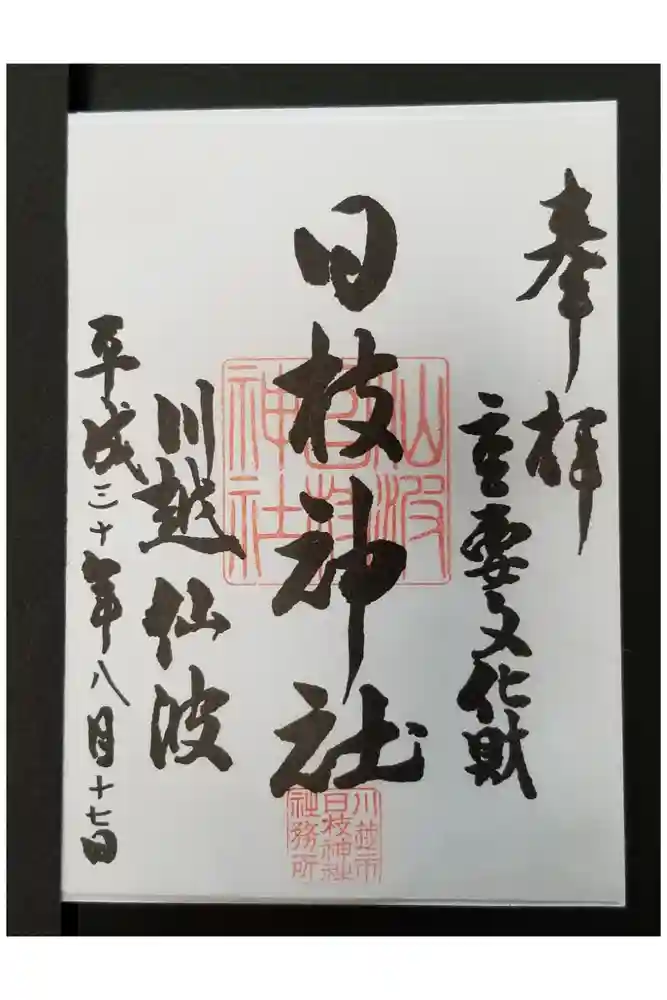 奉拝
重要文化財
日枝神社
仙波
日枝
神社
川越市
日枝神社
社務所
川越仙波
平成三十年八月十七日